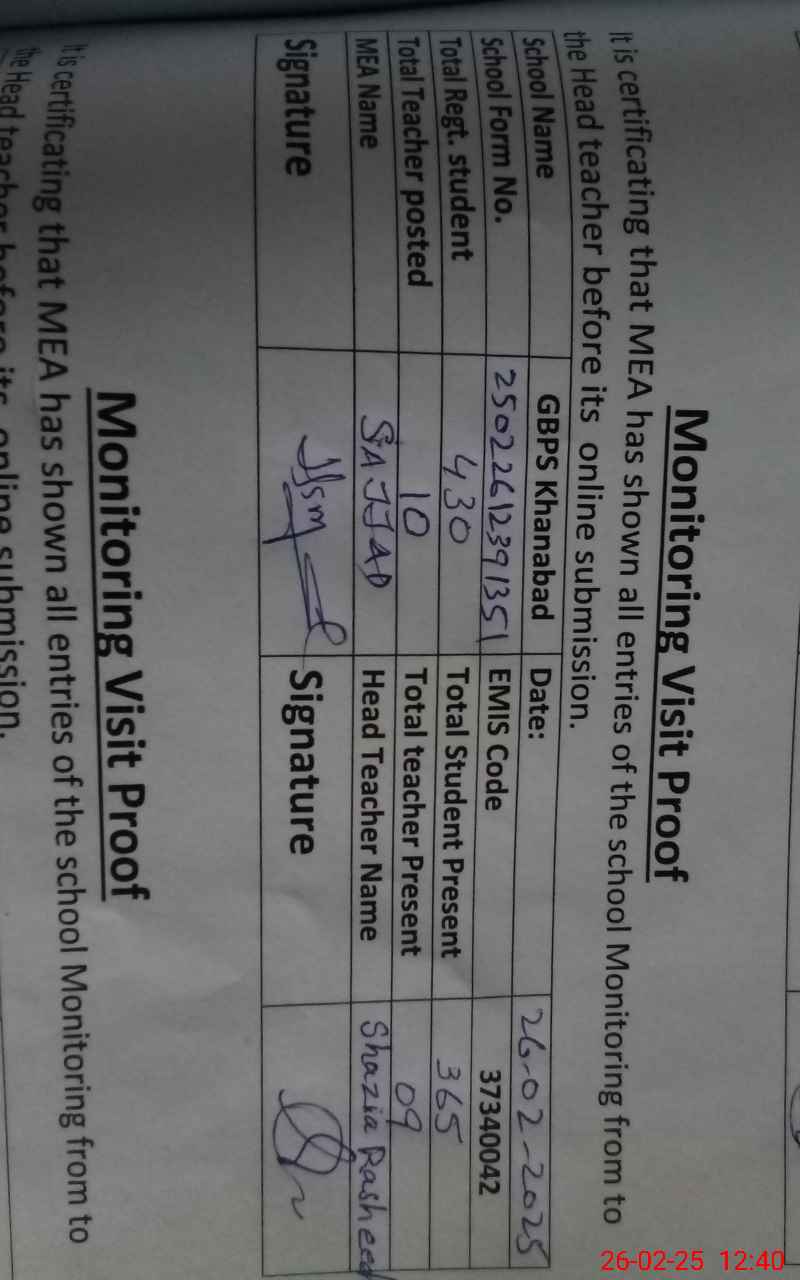 Monitoring Visit Proof
It is certificating that MEA has shown all entries of the school Monitoring from to
the Head teacher before its online submission.
School Name GBPS Khanabad Date: 26-02-2025
School Form No. 25022612391351 EMIS Code 37340042
Total Regt. student 430 Total Student Present 365
Total Teacher posted 10 Total teacher Present 09
MEA Name SAJJAD Head Teacher Name Shazia Rasheed
Signature Signature
Monitoring Visit Proof
It is certificating that MEA has shown all entries of the school Monitoring from to
the Head teacher before its online submission.
26-02-25 12:40